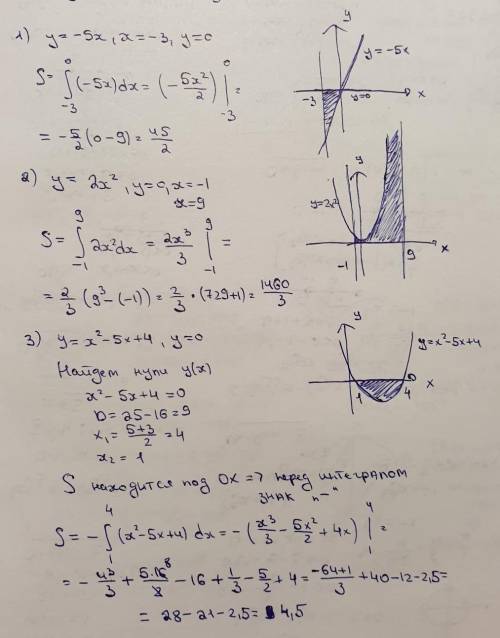 1) y = -5x, x = -3, y = 0
S = ∫₋₃⁰ (-5x)dx = (-5x²/2) |₋₃⁰ =
= -5/2 (0-9) = 45/2
y
y = -5x
-3
y=0
x
2) y = 2x², y = 0, x = -1
x = 9
S = ∫₋₁⁹ 2x²dx = 2x³/3 |₋₁⁹ =
= 2/3 (9³-(-1)) = 2/3 · (729+1) = 1460/3
y
y=2x²
-1
9
x
3) y = x²-5x+4, y = 0
Найдем нули y(x)
x²-5x+4=0
D = 25-16 = 9
x₁ = 5+3/2 = 4
x₂ = 1
y
y=x²-5x+4
1
4
x
S находится под OX => перед интегралом
знак "-"
S = -∫₁⁴ (x²-5x+4) dx = -(x³/3 - 5x²/2 + 4x) |₁⁴ =
= -4³/3 + 5·16⁸/2 - 16 + 1/3 - 5/2 + 4 = -64+1/3 + 40-12-2,5 =
= 28-21-2,5 = 4,5